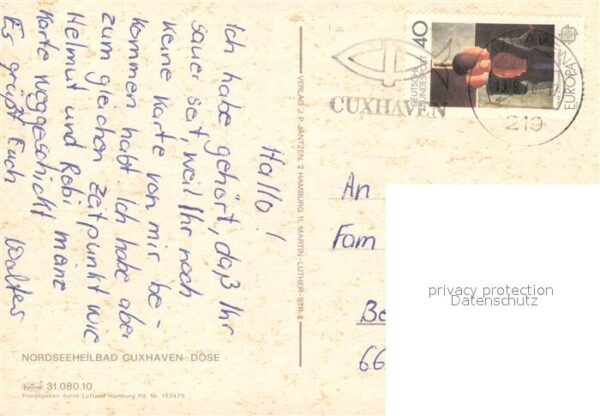 Hallo!
Ich habe gehört, daß Ihr
sauer seit, weil Ihr noch
keine Karte von mir be-
kommen habt. Ich habe aber
zum gleichen Zeitpunkt wie
Helmut und Robi meine
Karte weggeschickt
Es grüßt Euch Walter
NORDSEEHEILBAD CUXHAVEN-DÖSE
31.080.10
Freigegeben durch Luftamt Hamburg Rd. Nr. 152475
VERLAG J. P. JANTZEN, 2 HAMBURG 11, MARTIN-LUTHER-STR. 8
CUXHAVEN
DEUTSCHE
BUNDESPOST
40
EUROPA
219
An
Fam
Be
66
privacy protection
Datenschutz